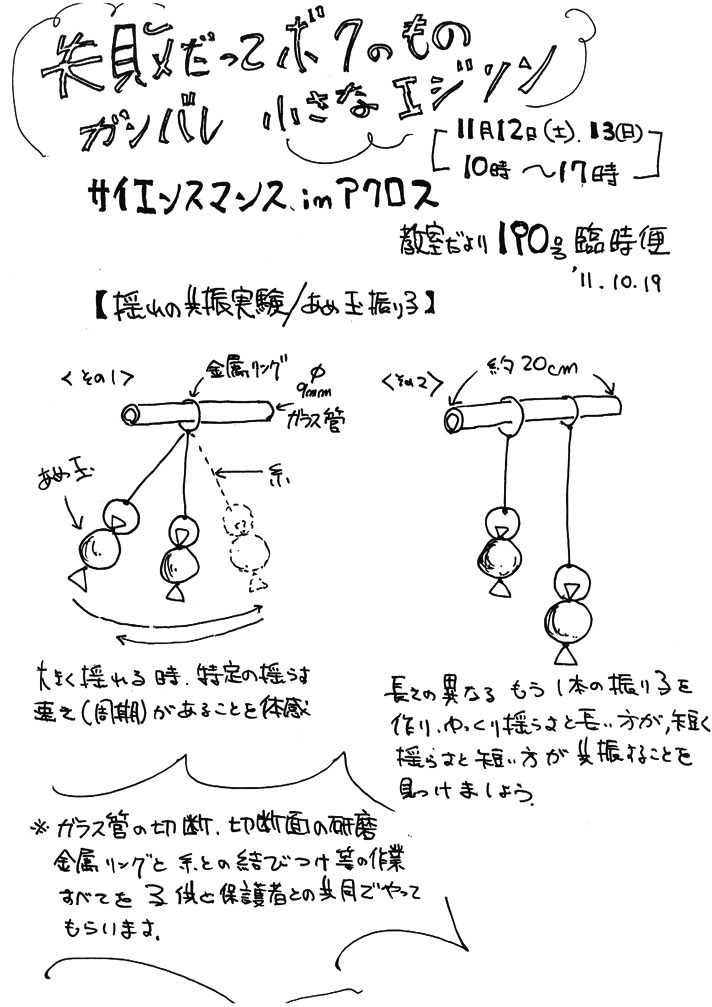 失敗だってボクのもの
ガンバレ 小さなエジソン
11月12日(土).13(日)
10時 〜17時
サイエンスマンス、inアクロス
教室だより190号臨時便
'11.10.19
【揺れの共振実験/あめ玉振り子】
<その1>
金属リング
φ
9mm
ガラス管
あめ玉
糸
大きく揺れる時、特定の揺らす
悪さ(周期)があることを体感
<その2>
約20cm
長さの異なる もう1本の振り子を
作り、ゆっくり揺らすと長い方が、短く
揺らすと短い方が共振することを
見つけましょう。
※ガラス管の切断、切断面の研磨
金属リングと糸との結びつけ等の作業
すべてを子供と保護者との共同でやって
もらいます。